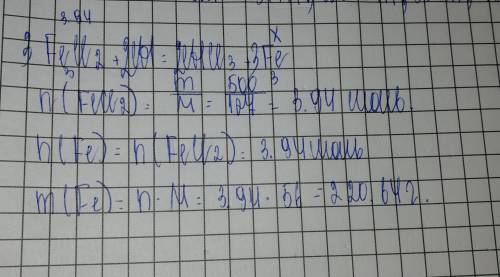 3.94 x
3 FeCl2 + 2Al = 2AlCl3 + 3Fe
3 3
n(FeCl2) = m/M = 500/127 = 3.94 моль.
n(Fe) = n(FeCl2) = 3.94 моль
m(Fe) = n · M = 3.94 · 56 = 220,64 г.